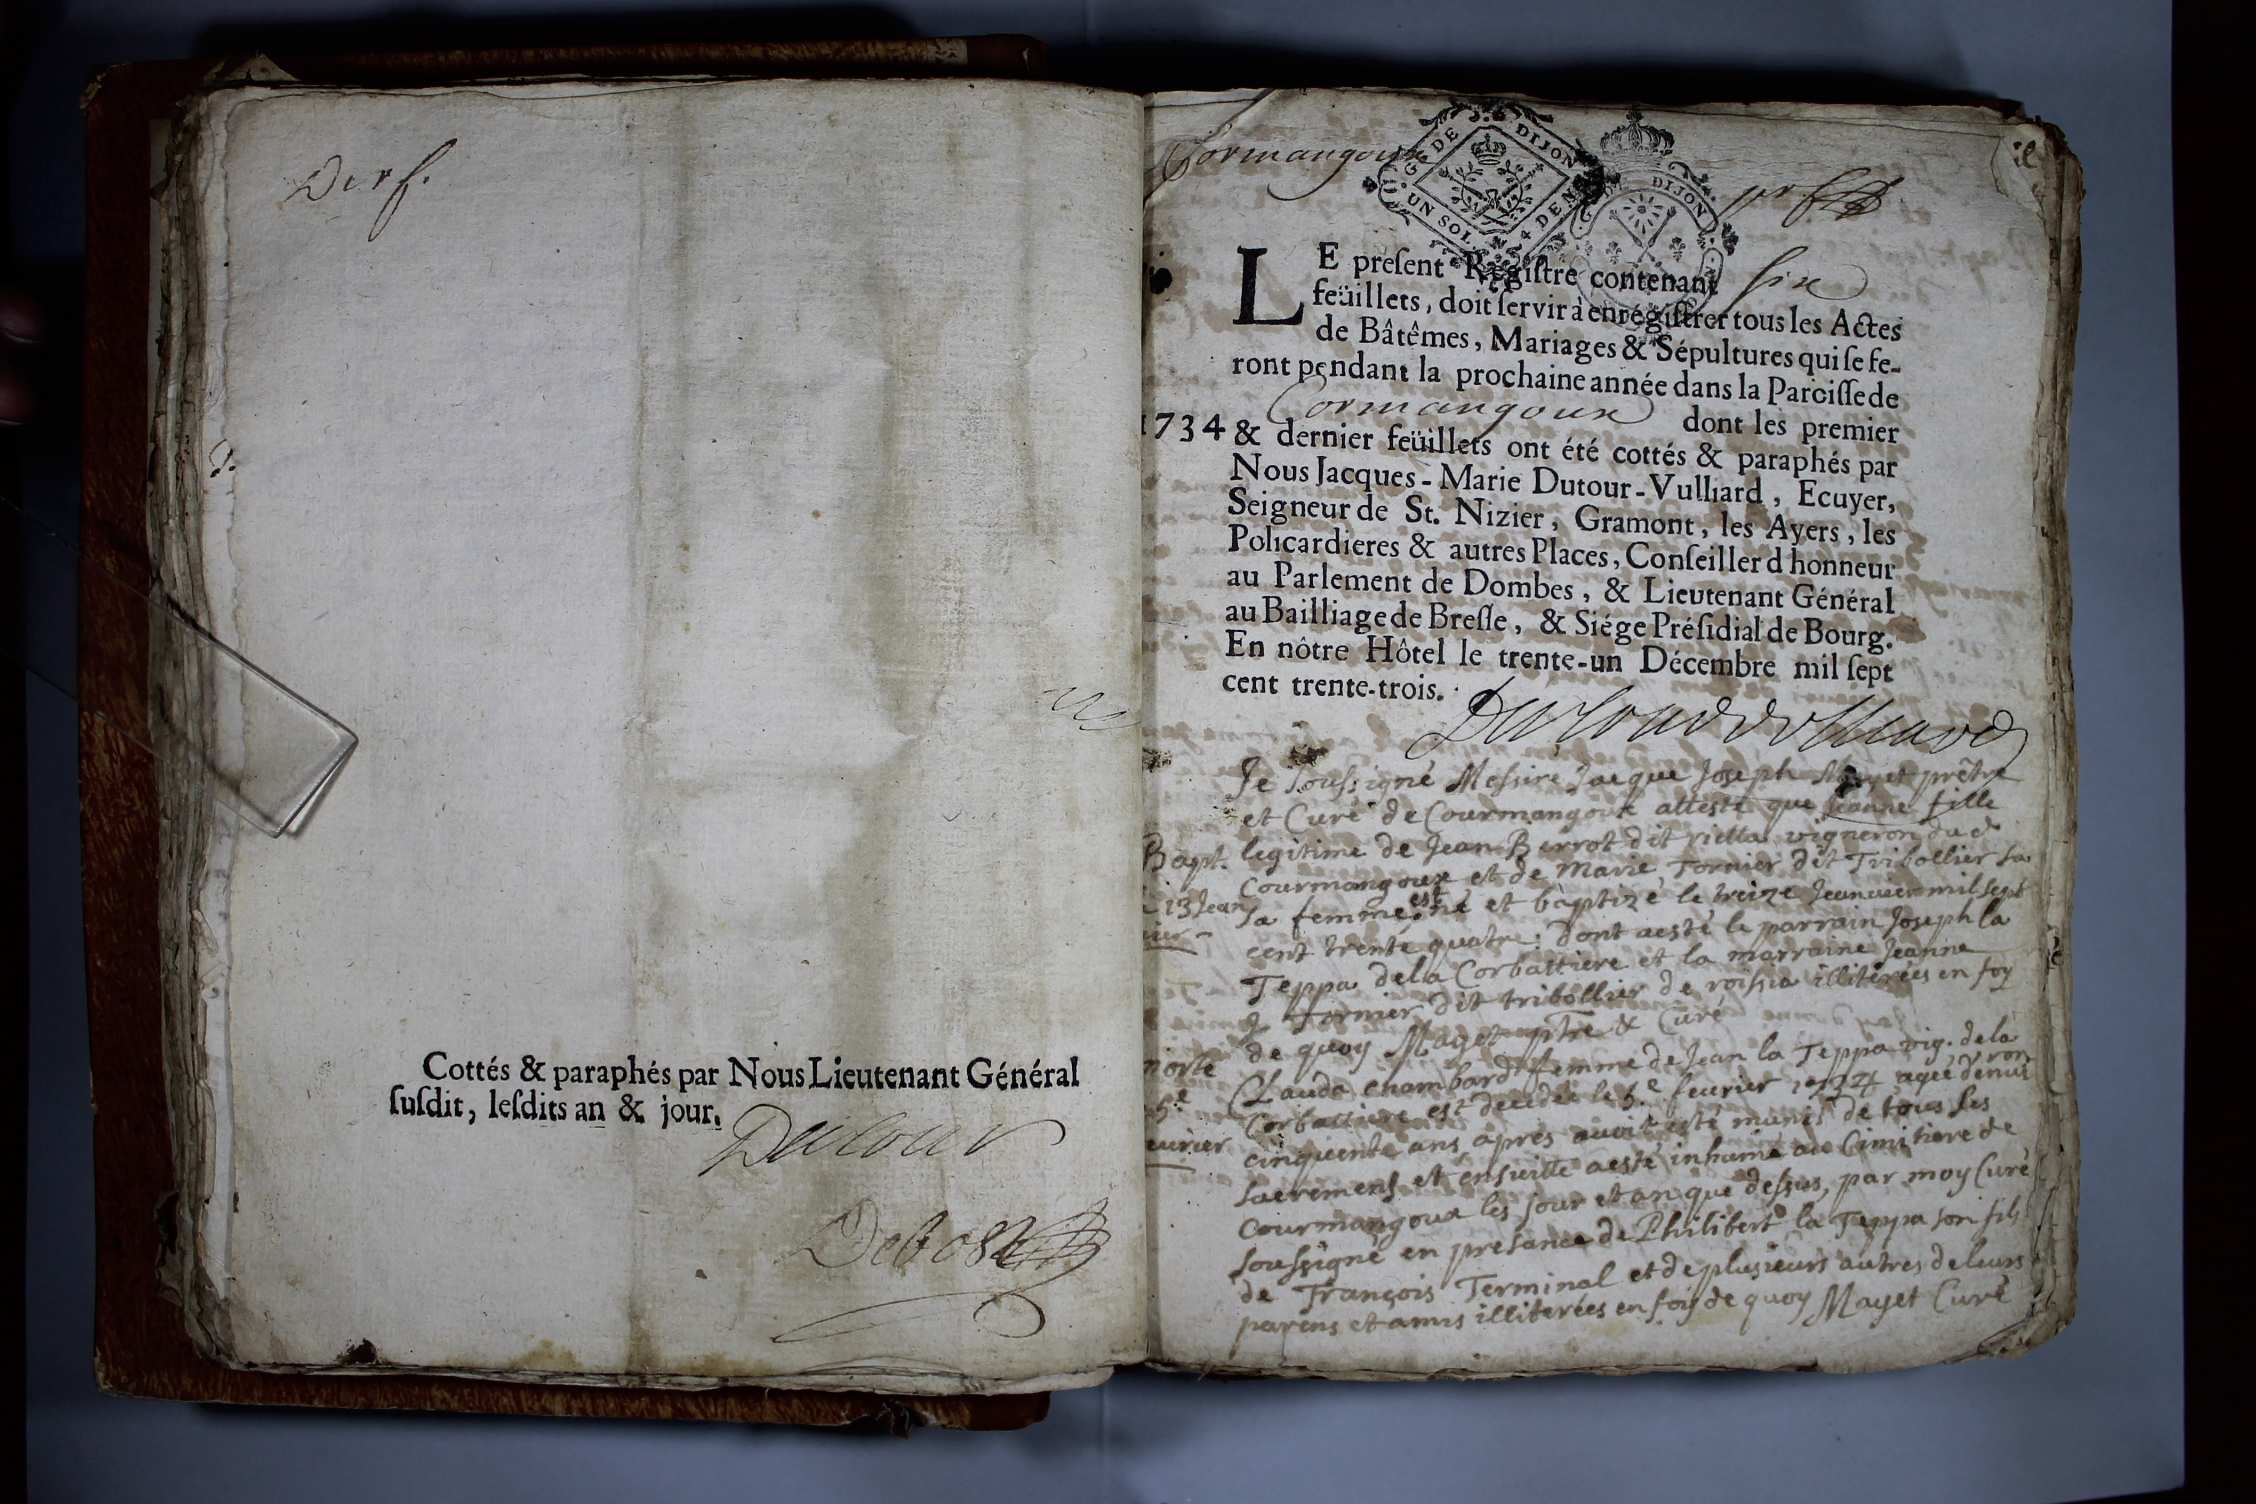 Der f.
Cottés & paraphés par Nous Lieutenant Général
ſuſdit, leſdits an & jour.
Dutour
Debost
Cormangoux
G. DE DIJON
UN SOL. 4 DEN.
DIJON
pr f
LE preſent Régiſtre contenant ſix
feüillets, doit ſervir à enrégiſtrer tous les Actes
de Bâtêmes, Mariages & Sépultures qui ſe fe-
ront pendant la prochaine année dans la Paroiſſe de
Cormangoux dont les premier
1734 & dernier feüillets ont été cottés & paraphés par
Nous Jacques-Marie Dutour-Vulliard, Ecuyer,
Seigneur de St. Nizier, Gramont, les Ayers, les
Policardieres & autres Places, Conſeiller d honneur
au Parlement de Dombes, & Lieutenant Général
au Bailliage de Breſſe, & Siége Préſidial de Bourg.
En nôtre Hôtel le trente-un Décembre mil ſept
cent trente-trois.
Dutour Vulliard
Je soussigné Messire Jacque Joseph Mayet prêtre
et Curé de Courmangoux atteste que Jeanne fille
Bapt. legitime de Jean Berrot dit vietta vigneron dud
Courmangoux et de Marie Tornier dit Tribollier sa
13 Jean sa femme est né et baptizé le treize Jeanvier mil sept
vier cent trente quatre. Dont aesté le parrain Joseph la
Teppa dela Corbattiere et la marraine Jeanne
Tornier dit tribollier de roissia illiterées en foy
de quoy Mayet ptre & Curé
morte Clauda chambard femme de Jean la Teppa vig. dela
5e Corbattiere est decedée le 5e feurier 1734 agée denui
ron
feurier cinquente ans apres auoir esté munis de tous les
sacremens et ensuitte aesté inhumé au Cimitiere de
Courmangoux les jour et an que dessus, par moy Curé
soussigné en presance de Philibert la Teppa son fils
de François Terminal et de plusieurs autres de leurs
parens et amis illiterées en foy de quoy Mayet Curé